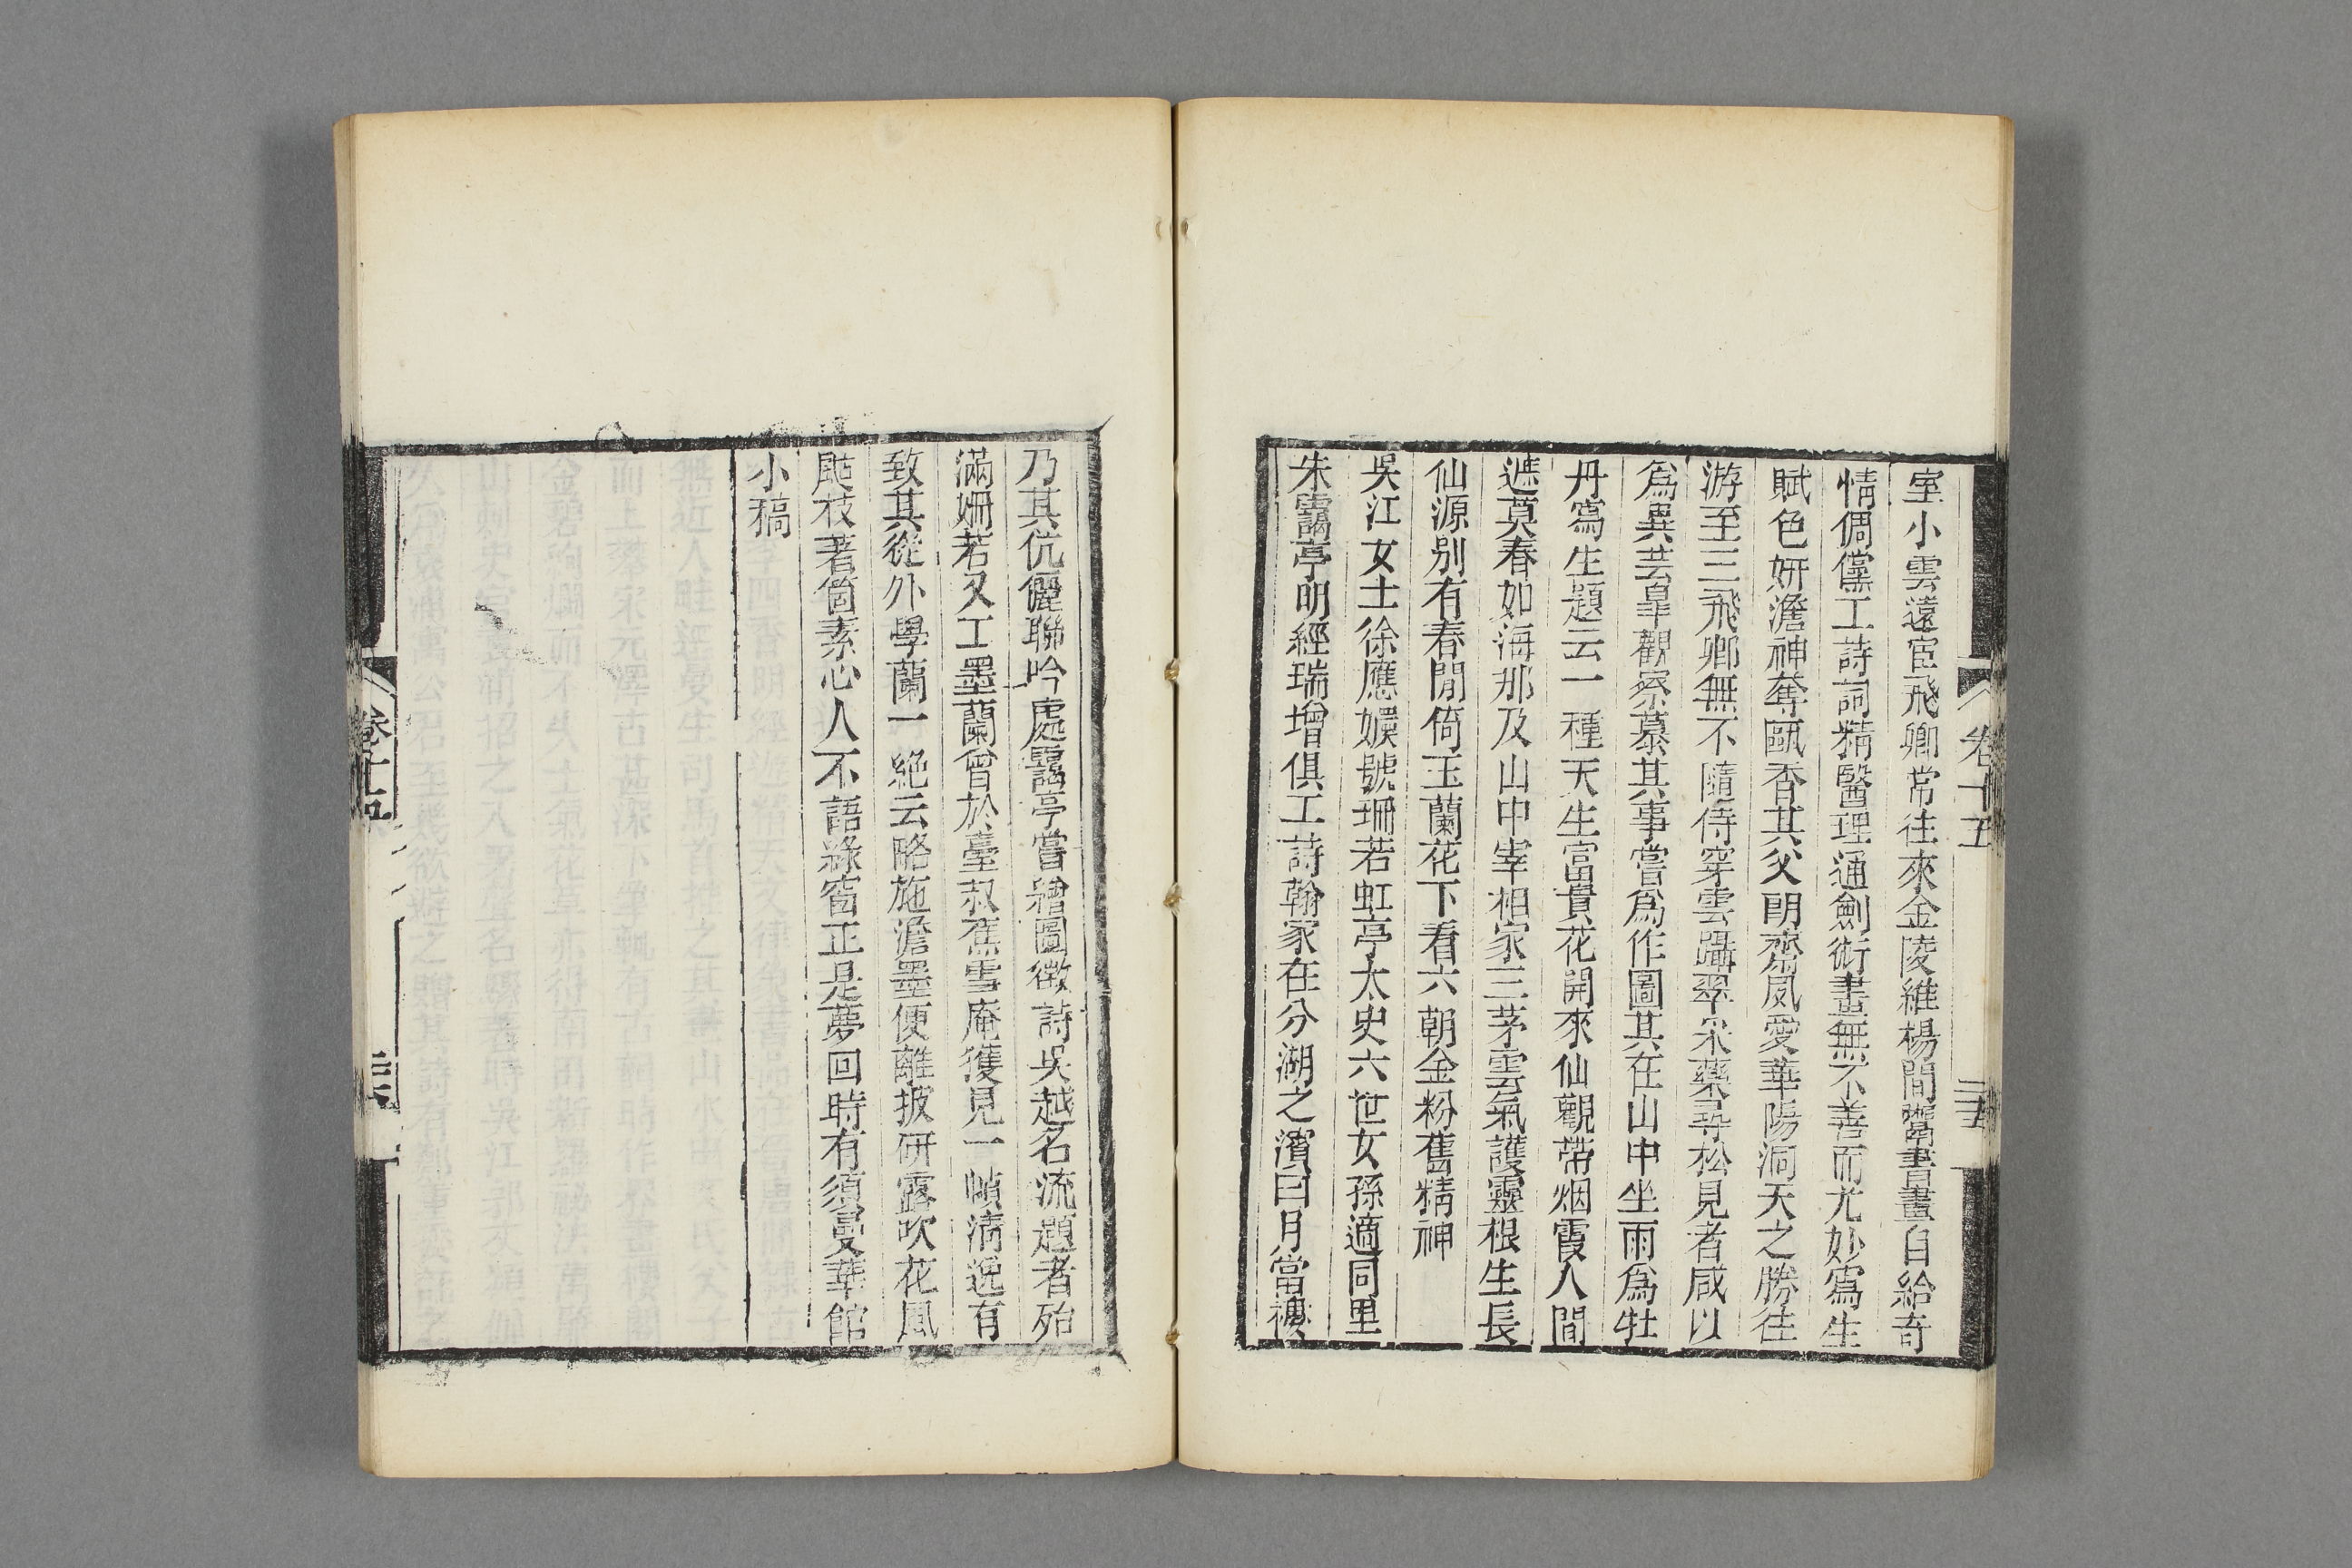 卷十五
二五
室小雲遠宦飛卿常往來金陵維楊間鬻書畫自給奇
情倜儻工詩詞精醫理通劍術畫無不善而尤妙寫生
賦色妍澹神奪甌香其父朗齋夙愛華陽洞天之勝往
游至三飛卿無不隨侍穿雲躡翠采藥尋松見者咸以
爲異芸皐觀察慕其事嘗爲作圖其在山中坐雨爲牡
丹寫生題云一種天生富貴花開來仙觀帶烟霞人間
遮莫春如海那及山中宰相家三茅雲氣護靈根生長
仙源別有春閒倚玉蘭花下看六朝金粉舊精神
吳江女士徐應嬽號珊若虹亭太史六世女孫適同里
朱靄亭明經瑞增俱工詩翰家在分湖之濱曰月當樓
乃其伉儷聯吟處靄亭嘗繪圖徵詩吳越名流題者殆
滿姍若又工墨蘭曾於臺叔蕉雪庵獲見一幀清逸有
致其從外學蘭一絶云略施澹墨便離披研露吹花風
颭枝著箇素心人不語綠窗正是夢回時有須曼華館
小稿
卷十五